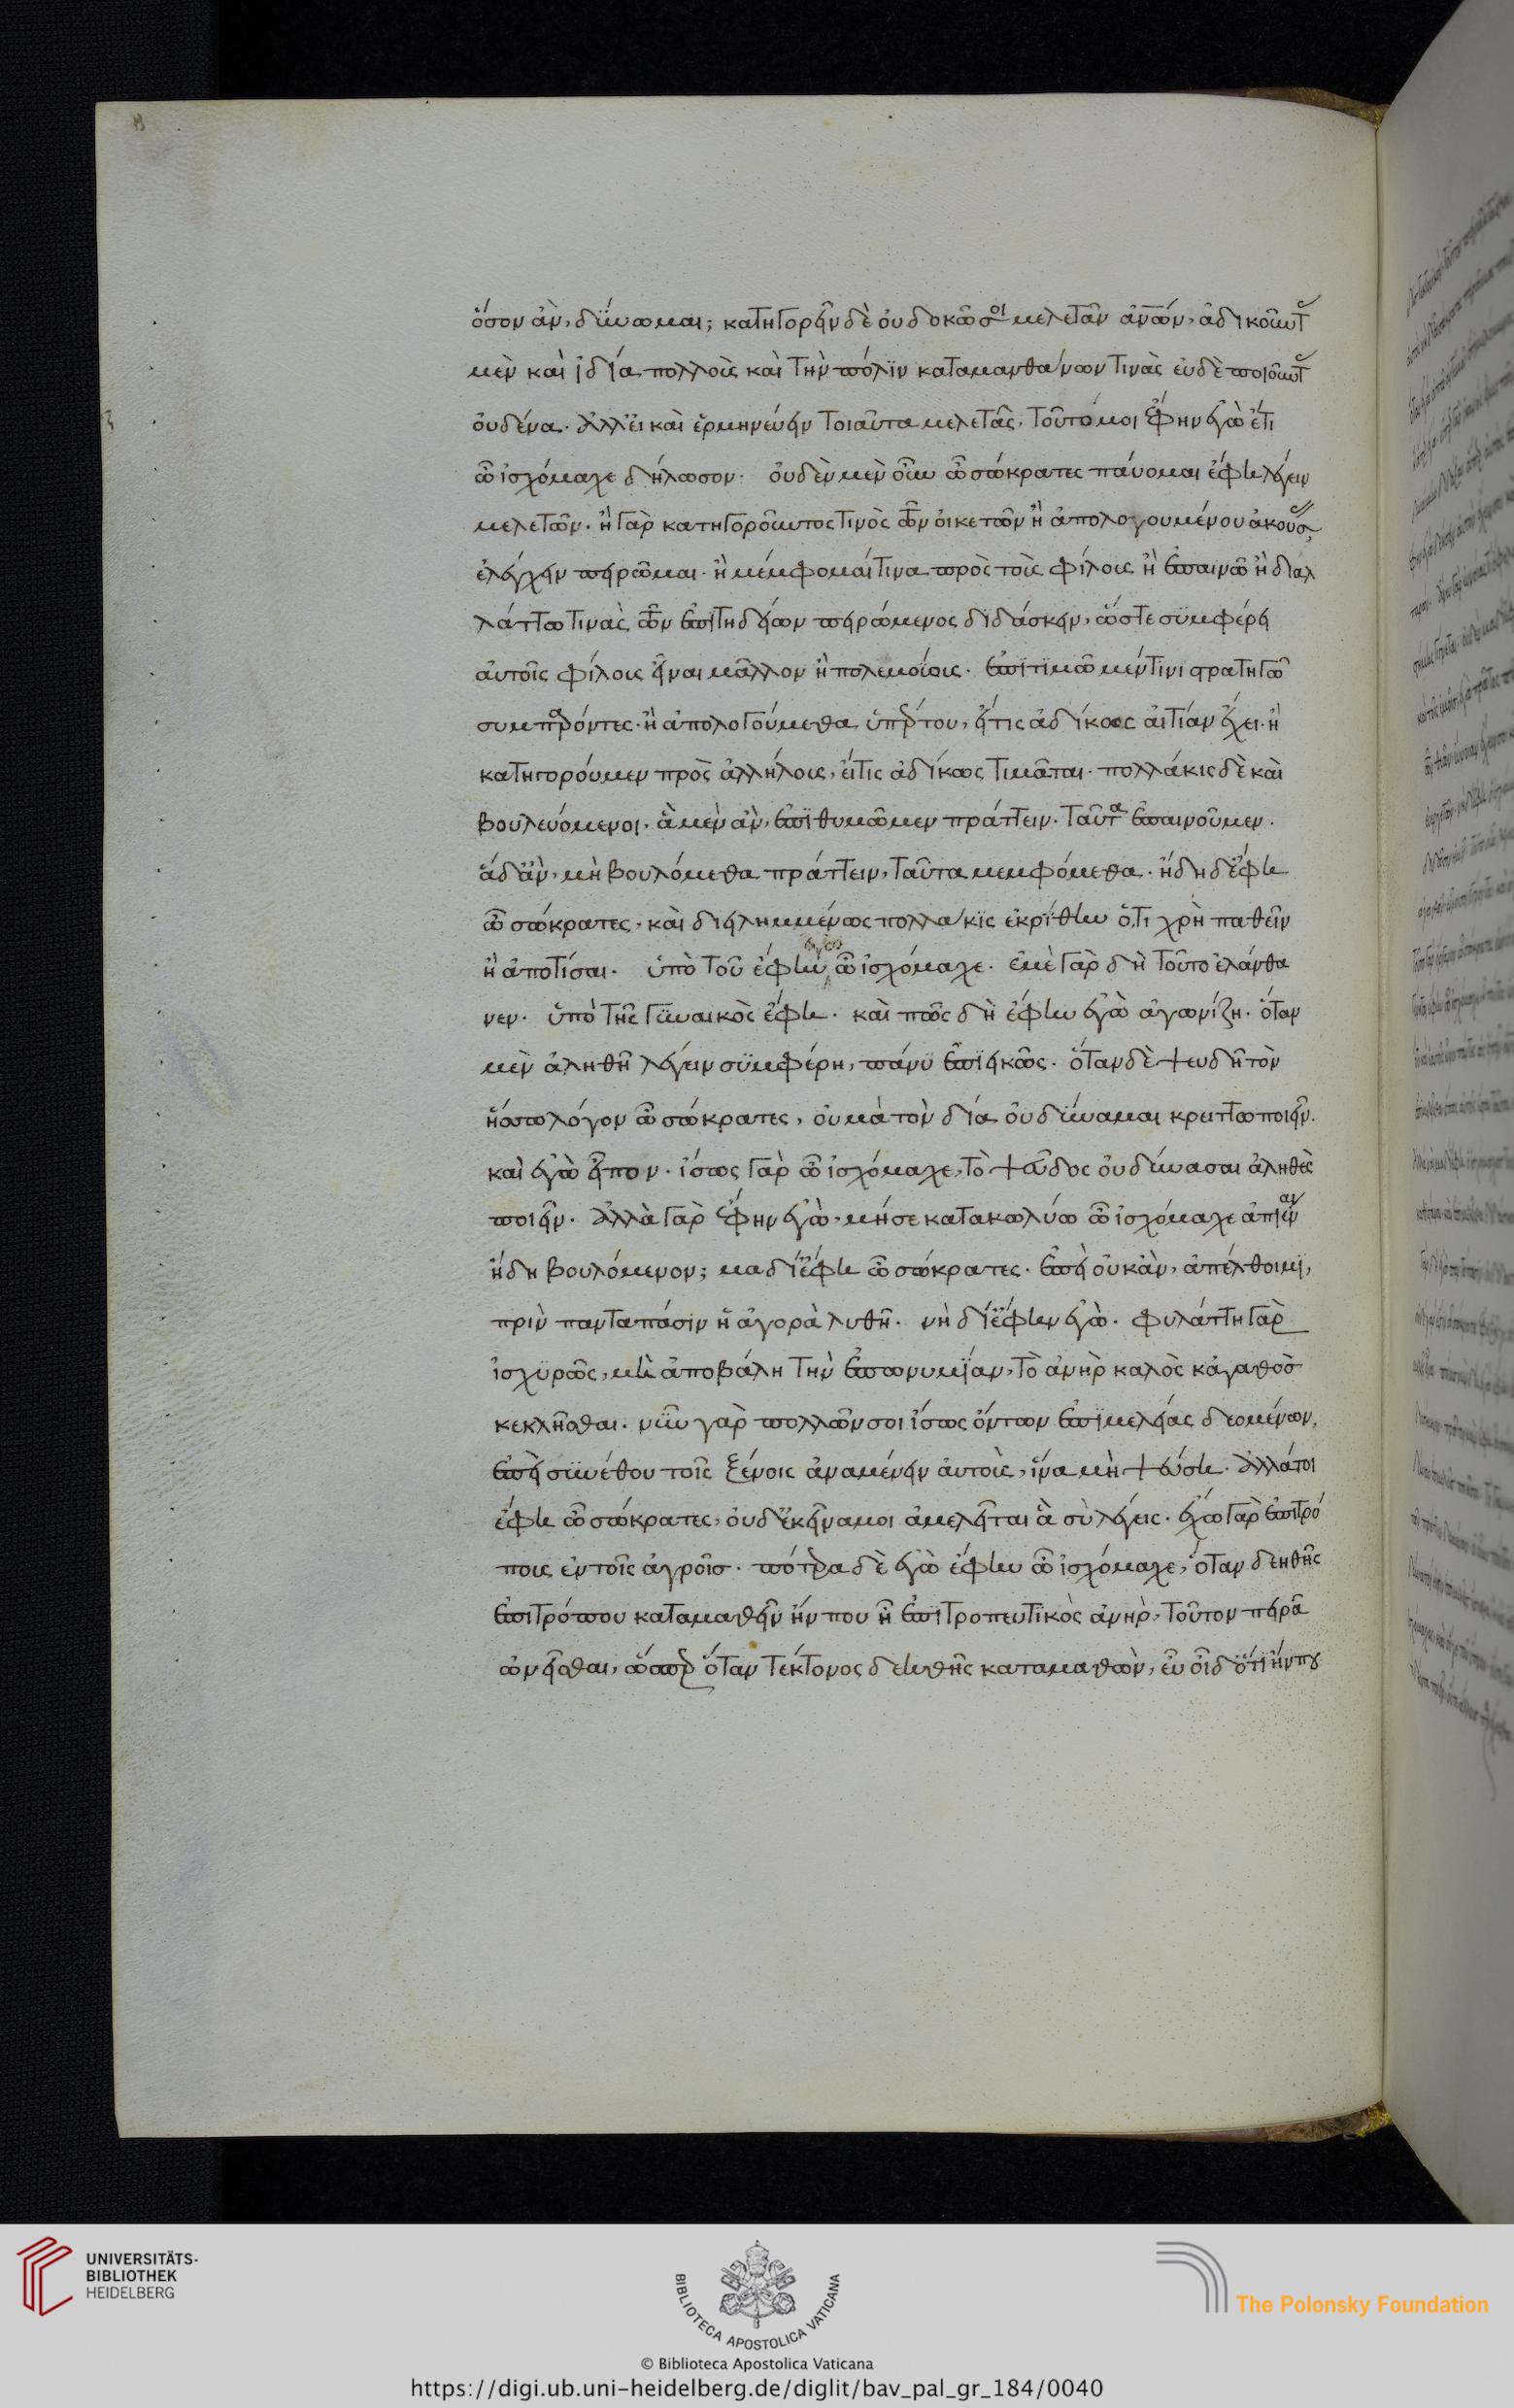 ὅσον ἂν, δύνωμαι; κατηγορεῖν δὲ οὐ δοκῶ σοι μελετᾶν ἀνθρώπων, ἀδικοῦντας
μὲν καὶ ἰδία πολλοὺς καὶ τὴν πόλιν καταμανθάνων τινὰς εὐ δὲ ποιοῦντας
οὐδένα. ἀλλ' εἰ καὶ ἑρμηνεύειν τοιαῦτα μελετᾶς, τοῦτό μοι ἔφην ἐγὼ ἔτι
ὦ ἰσχόμαχε δήλωσον. οὐδὲν μὲν οὖν ὦ σώκρατες παύομαι ἔφη λέγειν
μελετῶν. ἢ γὰρ κατηγοροῦντος τινὸς τῶν οἰκετῶν ἢ ἀπολογουμένου ἀκούσας,
ἐλέγχειν πειρῶμαι. ἢ μέμφομαί τινα πρὸς τοὺς φίλους ἢ ἐπαινῶ ἢ διαλ
λάττω τινὰς τῶν ἐπιτηδείων πειρώμενος διδάσκειν, ὥστε συμφέρει
αὐτοῖς φίλοις εἶναι μᾶλλον ἢ πολεμοίοις. ἐπιτιμῶμέν τινι στρατηγῶ
συμπαρόντες. ἢ ἀπολογούμεθα ὑπέρ του, εἴ τις ἀδίκως αἰτίαν ἔχει. ἢ
κατηγορούμεν πρὸς ἀλλήλοις, εἴ τις ἀδίκως τιμᾶται. πολλάκις δὲ καὶ
βουλευόμενοι. ἃ μὲν ἂν, ἐπιθυμῶμεν πράττειν. ταῦτα ἐπαινοῦμεν.
ἅ δ' ἂν, μὴ βουλόμεθα πράττειν, ταῦτα μεμφόμεθα. ἤδη δ' ἔφη
ὦ σώκρατες, καὶ διειλημμένως πολλάκις ἐκρίθην ὅ,τι χρὴ παθεῖν
ἢ ἀποτίσαι. ὑπὸ τοῦ ἔφην ἐγὼ ὦ ἰσχόμαχε. ἐμὲ γὰρ δὴ τοῦτο ἐλάνθα
νεν. ὑπὸ τῆς γυναικὸς ἔφη. καὶ πῶς δὴ ἔφην ἐγὼ ἀγωνίζη. ὅταν
μὲν ἀληθῆ λέγειν συμφέρη, πάνυ ἐπιεικῶς. ὅταν δὲ ψευδῆ τὸν
ἥσσω λόγον ὦ σώκρατες, οὐ μὰ τὸν δία οὐ δύναμαι κρείττω ποιεῖν.
καὶ ἐγὼ εἶπον. ἴσως γὰρ ὦ ἰσχόμαχε, τὸ ψεῦδος οὐ δύνασαι ἀληθὲς
ποιεῖν. ἀλλὰ γὰρ ἔφην ἐγὼ, μή σε κατακωλύω ὦ ἰσχόμαχε ἀπιέναι
ἤδη βουλόμενον; μα δί' ἔφη ὦ σώκρατες. ἐπεὶ οὐκ ἂν, ἀπέλθοιμι,
πρὶν πανταπάσιν ἡ ἀγορὰ λυθῆ. νὴ δί' ἔφην ἐγὼ. φυλάττη γὰρ
ἰσχυρῶς, μὴ ἀποβάλη τὴν ἐπωνυμίαν, τὸ ἀνὴρ καλὸς κἀγαθὸσ
κεκλῆσθαι. νῦν γὰρ πολλῶν σοι ἴσως ὄντων ἐπιμελείας δεομένων,
ἐπεὶ συνέθου τοῖς ξένοις ἀναμένειν αὐτοὺς, ἵνα μὴ ψεύση. ἀλλά τοι
ἔφη ὦ σώκρατες, οὐδ' ἐκεῖνα μοι ἀμελεῖται ἃ σὺ λέγεις. ἔχω γὰρ ἐπιτρό
πους ἐν τοῖς ἀγροῖσ. πότερα δὲ ἐγὼ ἔφην ὦ ἰσχόμαχε, ὅταν δεηθῆς
ἐπιτρόπου καταμαθεῖν ἤν που ἦ ἐπιτροπευτικὸς ἀνὴρ, τοῦτον πειρᾶ
ὠνεῖσθαι, ὥσπερ ὅταν τέκτονος δεηθῆς καταμαθὼν, εὖ οἶδ' ὅτι ἤν που
UNIVERSITÄTS-
BIBLIOTHEK
HEIDELBERG
BIBLIOTECA APOSTOLICA VATICANA
The Polonsky Foundation
© Biblioteca Apostolica Vaticana
https://digi.ub.uni-heidelberg.de/diglit/bav_pal_gr_184/0040